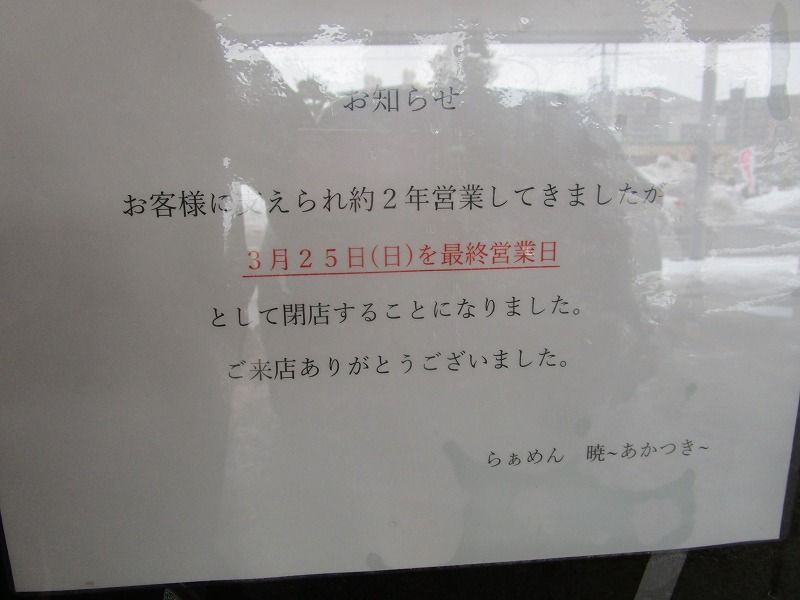 お知らせ
お客様に支えられ約２年営業してきましたが
３月２５日(日)を最終営業日
として閉店することになりました。
ご来店ありがとうございました。
らぁめん　暁~あかつき~